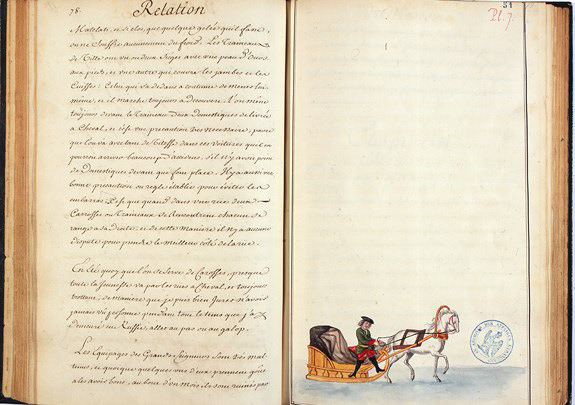 78.
Relation
Matelats, et de clos, que quelque gelée qu'il fasse,
on ne souffre aucunement du froid. Les Traineaux
de Ville ont un ou deux sieges avec une peau d'Ours
aux pieds, et une autre qui couvre les jambes et les
Cuisses: Celui qui va dedans a coutume de mener luy
même, et il marche toujours a decouvert. L'on mène
toujours devant le Traineau Deux domestiques de livrée
a Cheval, et c'est une precaution très necessaire, parce
que l'on va avec tant de vitesse dans ces voitures qu'il en
pourroit arriver beaucoup d'accidens, s'il n'y avoit point
de Domestiques devant qui font place. Il y a aussi une
bonne precaution ou regle établie pour éviter les
embarras. C'est que quand dans une rüe deux
Carrosses ou Traineaux se Rencontrent chacun se
range a sa droite, et de cette maniere il n'y a aucune
dispute pour prendre le meilleur côté de la rüe.
En Eté quoy que l'on se serve de Carosses, presque
toute la Jeunesse va par les rues a Cheval, et toujours
trottant, de maniere que je puis bien Jurer n'avoir
jamais vû personne pendant tout le tems que j'ay
demeuré en Russie, aller au pas ou au galop.
Les Equipages des Grands Seigneurs sont très mal
tenus, et quoyque quelques uns d'eux prennent goût
a les avoir bons, au bout d'un mois ils sont ruinés par
Pl. 7.